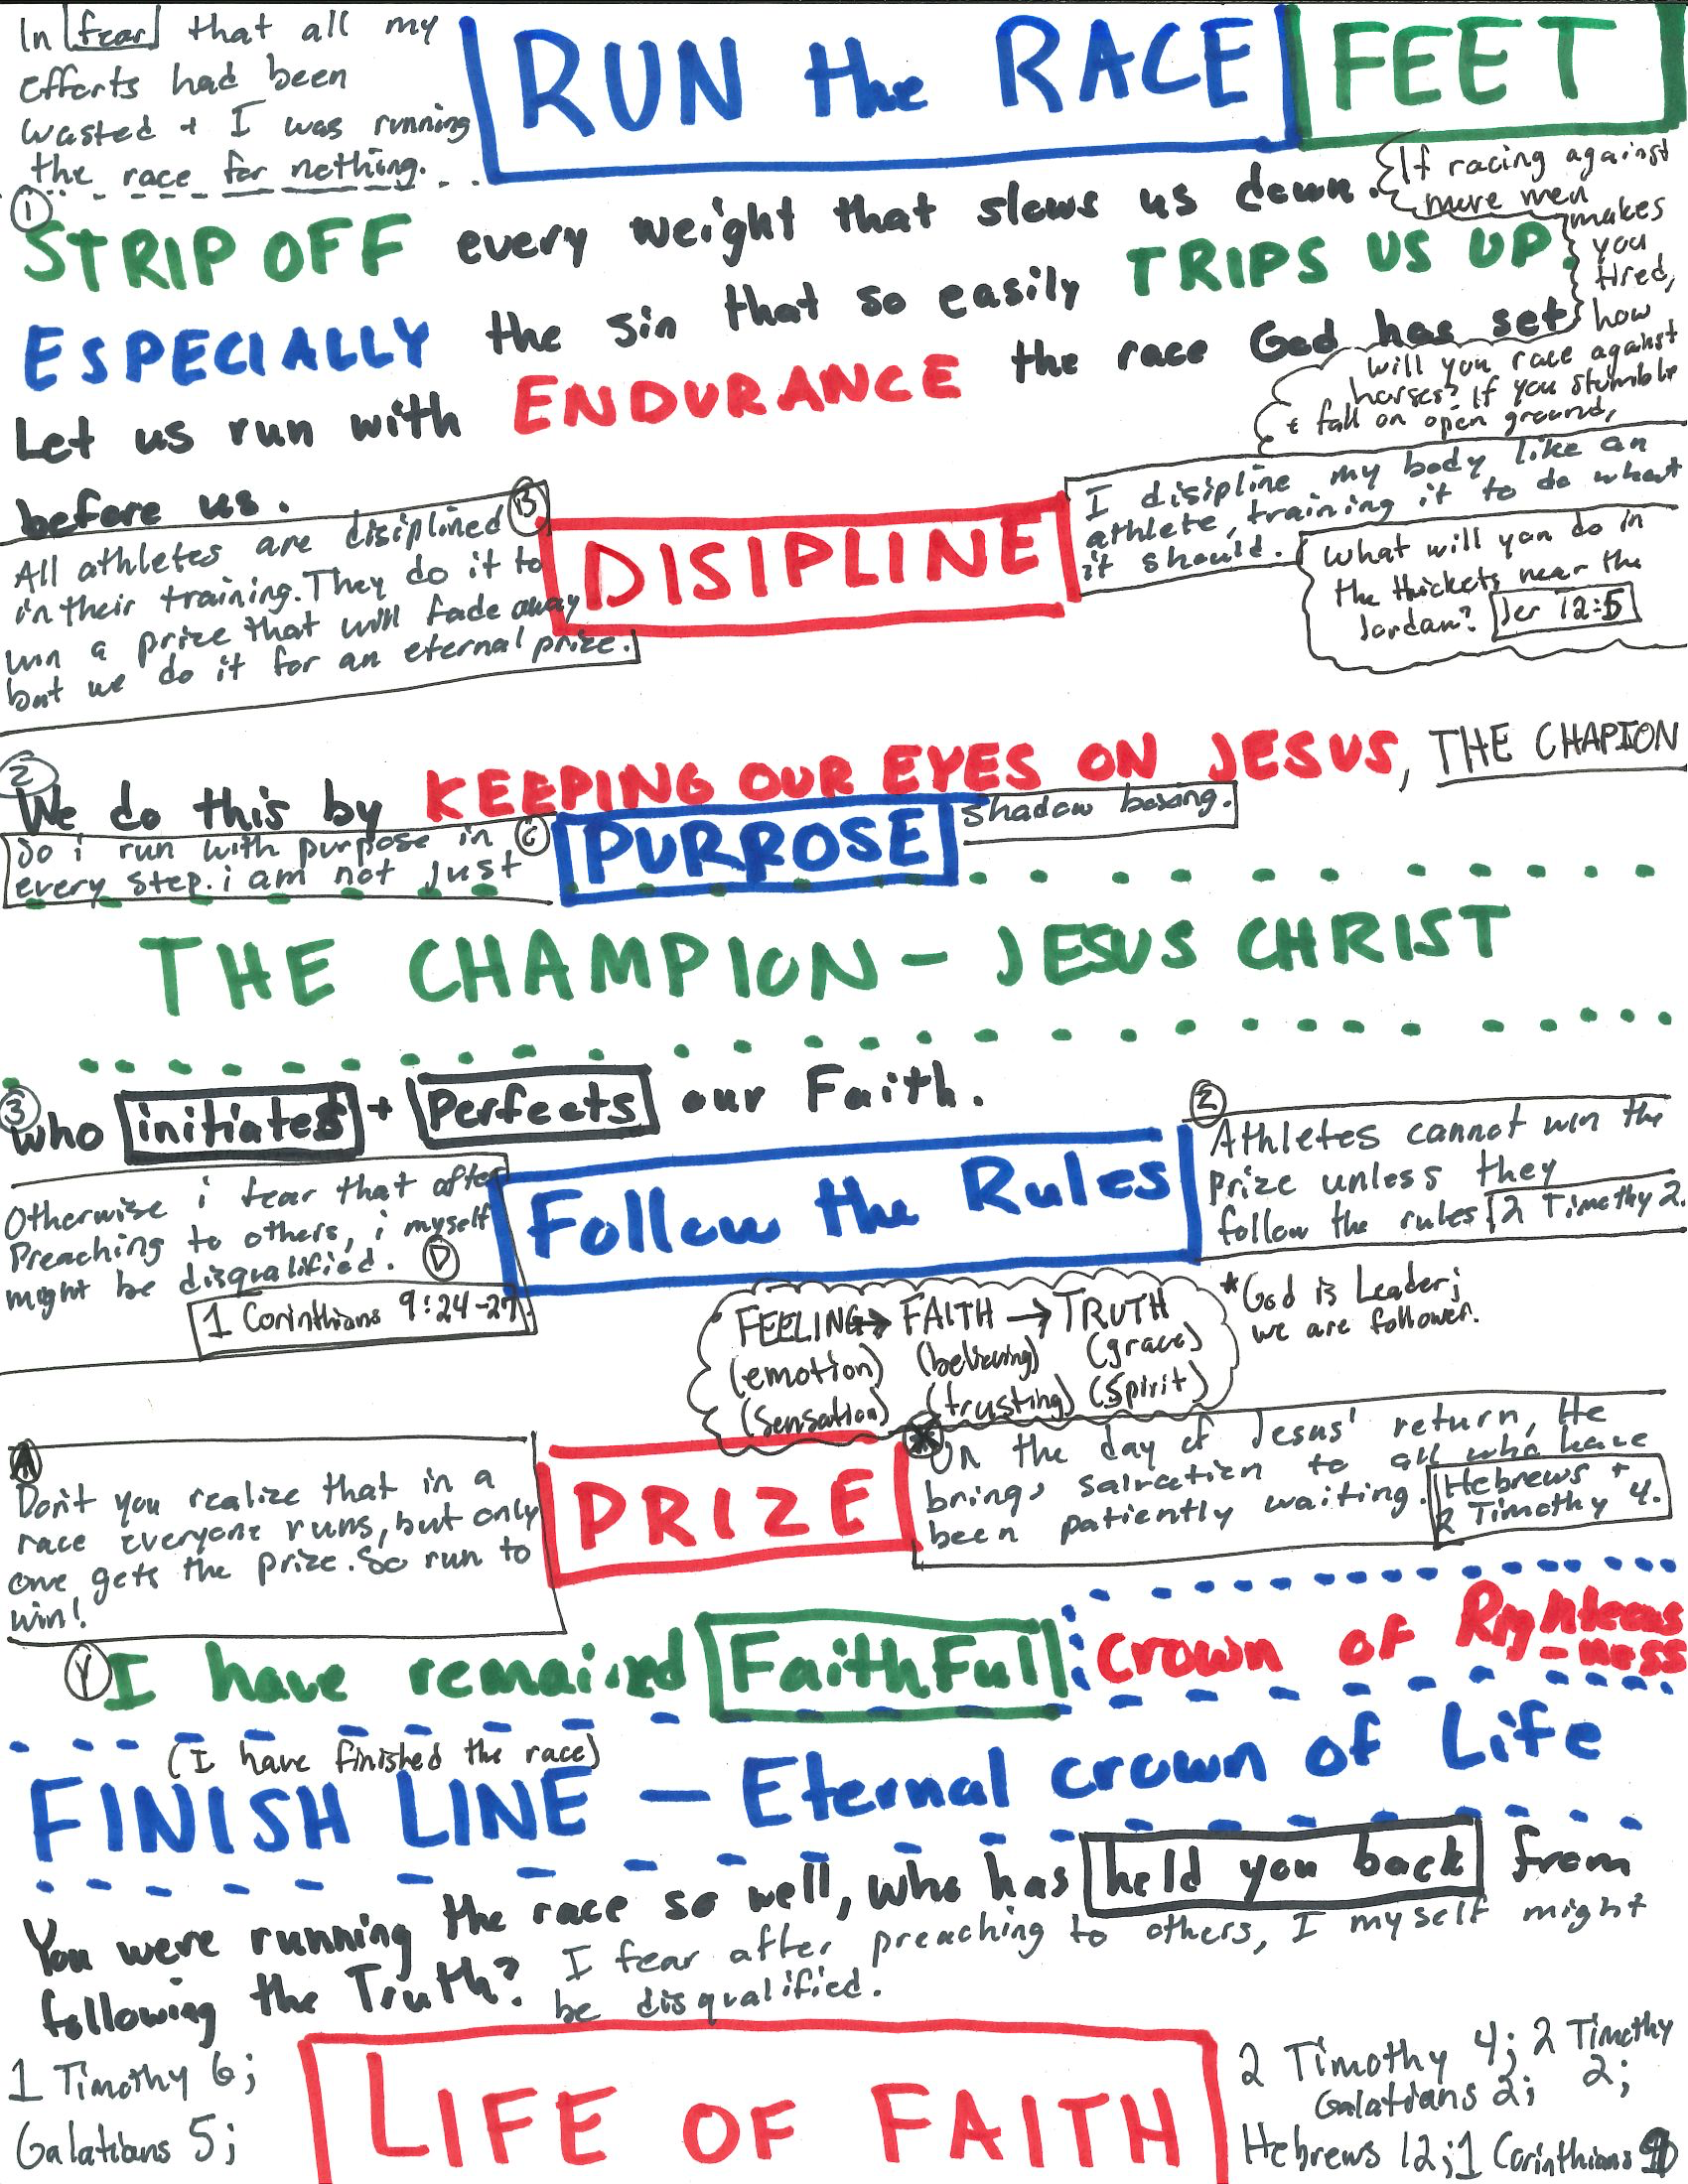 In fear that all my
efforts had been
wasted + I was running
the race for nothing.
RUN the RACE
FEET
{If racing against
mere men
makes
you
tired,
how
will you race against
horses? If you stumble
+ fall on open ground,
①
STRIP OFF every weight that slows us down.
ESPECIALLY the sin that so easily TRIPS US UP.
Let us run with ENDURANCE the race God has set
before us.
B
All athletes are disiplined
in their training. They do it to
win a prize that will fade away
but we do it for an eternal prize.
DISIPLINE
I disipline my body like an
athlete, training it to do what
it should.
What will you do in
the thickets near the
Jordan? Jer 12:5
②
We do this by KEEPING OUR EYES ON JESUS, THE CHAPION
So i run with purpose in
every step. i am not just
C
PURPOSE
shadow boxing.
THE CHAMPION - JESUS CHRIST
③
who initiates + Perfects our Faith.
Otherwise i fear that after
Preaching to others, i myself
might be disqualified. D
1 Corinthians 9:24-27
Follow the Rules
②
Athletes cannot win the
prize unless they
follow the rules, 2 Timothy 2.
*God is Leader;
we are follower.
FEELING → FAITH → TRUTH
(emotion) (believing) (grace)
(sensation) (trusting) (Spirit)
A
Don't you realize that in a
race everyone runs, but only
one gets the prize. So run to
win!
PRIZE
*
On the day of Jesus' return, He
brings salvation to all who have
been patiently waiting.
Hebrews +
2 Timothy 4.
Y
I have remained FaithFul
crown of Righteous
-ness
(I have finished the race)
FINISH LINE - Eternal crown of Life
You were running the race so well, who has held you back from
following the Truth?
I fear after preaching to others, I myself might
be disqualified.
1 Timothy 6;
Galatians 5;
LIFE OF FAITH
2 Timothy 4; 2 Timothy
2;
Galatians 2;
Hebrews 12; 1 Corinthians